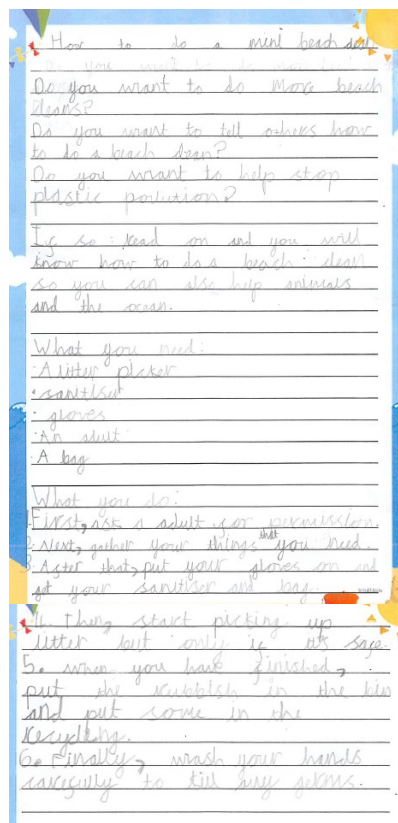 How to do a mini beach clean
Do you want to do more beach
cleans?
Do you want to tell others how
to do a beach clean?
Do you want to help stop
plastic pollution?
If so : Read on and you will
know how to do a beach clean
so you can also help animals
and the ocean.
What you need:
• A litter picker
• sanitiser
• gloves
• An adult
• A bag
What you do:
1. First, ask a adult for permission.
2. Next, gather your things that you need.
3. After that, put your gloves on and
get your sanitiser and bag.
4. Then, start picking up
litter but only if it's safe.
5. when you have finished,
put the rubbish in the bin
and put some in the
recycling.
6. Finally, wash your hands
carefully to kill any germs.